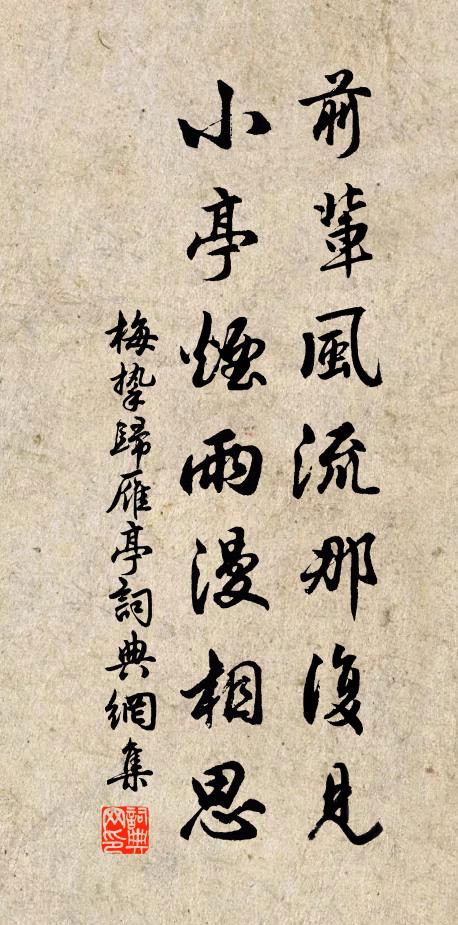 前輩風流那復見
小亭煙雨漫相思
梅摯歸雁亭詞典網集
詞典网印